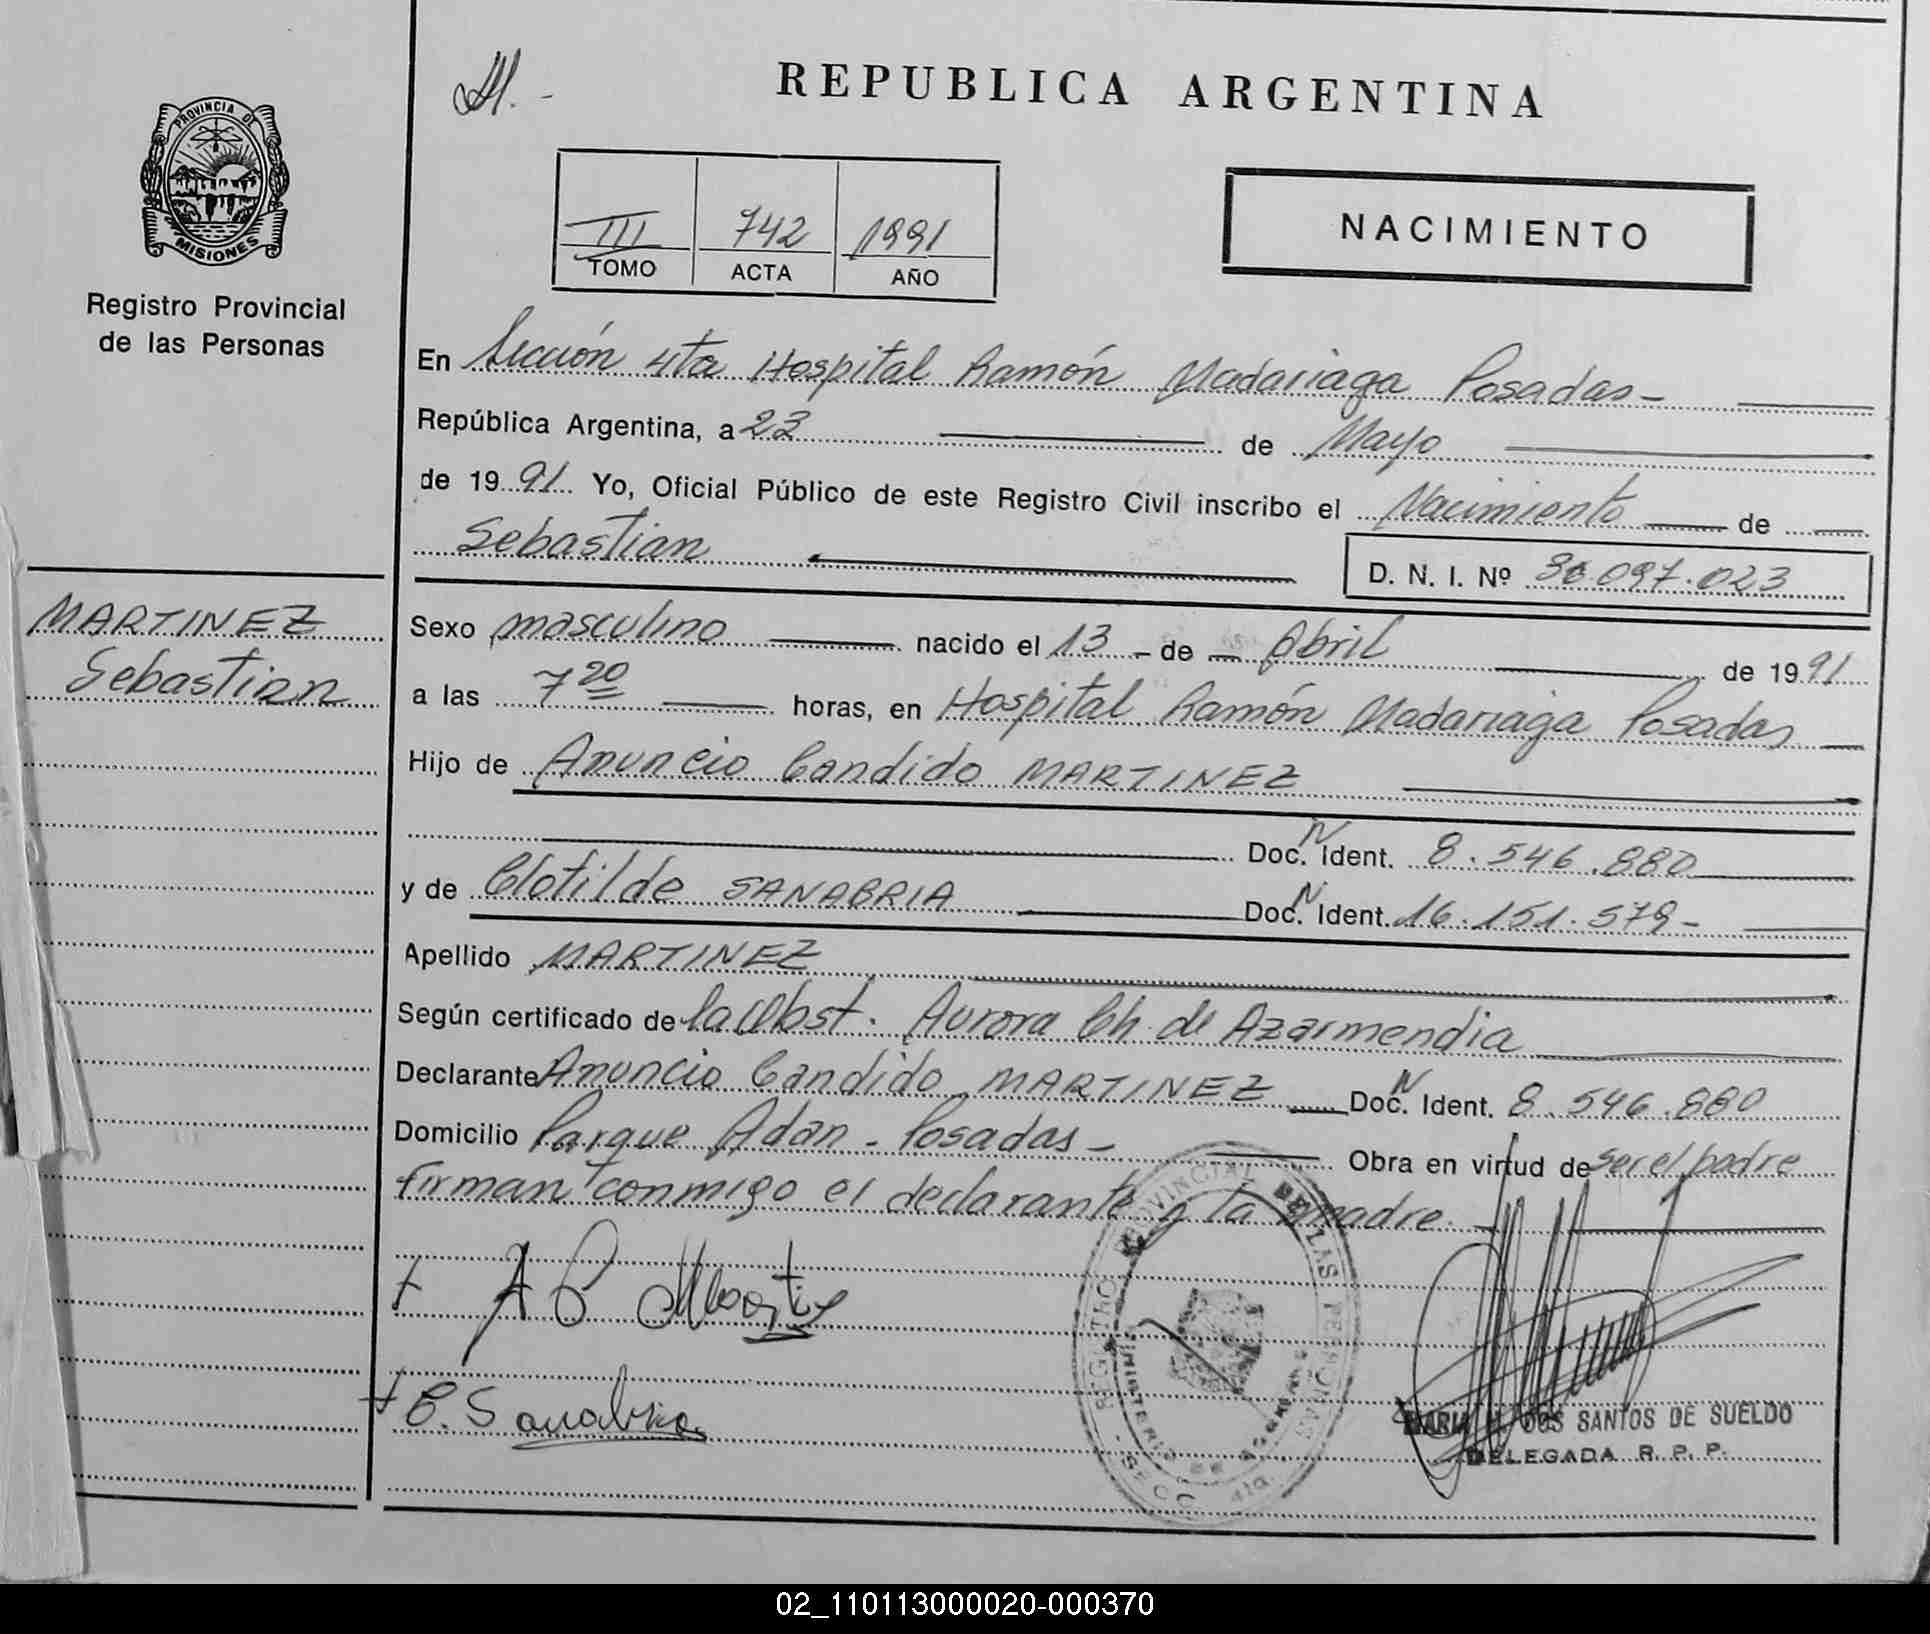 REPUBLICA ARGENTINA
PROVINCIA DE
MISIONES
Registro Provincial
de las Personas
III 742 1991
TOMO ACTA AÑO
NACIMIENTO
En Sección 4ta Hospital Ramón Madariaga Posadas-
República Argentina, a 23 de Mayo
de 1991 Yo, Oficial Público de este Registro Civil inscribo el Nacimiento de
Sebastian
D. N. I. Nº 36.097.023
MARTINEZ
Sebastian
Sexo masculino nacido el 13 - de - Abril de 1991
a las 7 20 horas, en Hospital Ramón Madariaga Posadas
Hijo de Anuncio Candido MARTINEZ
Doc. N Ident. 8.546.880
y de Clotilde SANABRIA Doc. N Ident. 16.151.579-
Apellido MARTINEZ
Según certificado de la Obst. Aurora Ch. de Azarmendia
Declarante Anuncio Candido MARTINEZ Doc. N Ident. 8.546.880
Domicilio Parque Adan - Posadas - Obra en virtud de ser el padre
firman conmigo el declarante y la madre.
A C Martinez
C. Sanabria
REGISTRO PROVINCIAL DE LAS PERSONAS
MINISTERIO DE GOBIERNO
SECC. 4ta.
DOS SANTOS DE SUELDO
DELEGADA R. P. P.
02_110113000020-000370